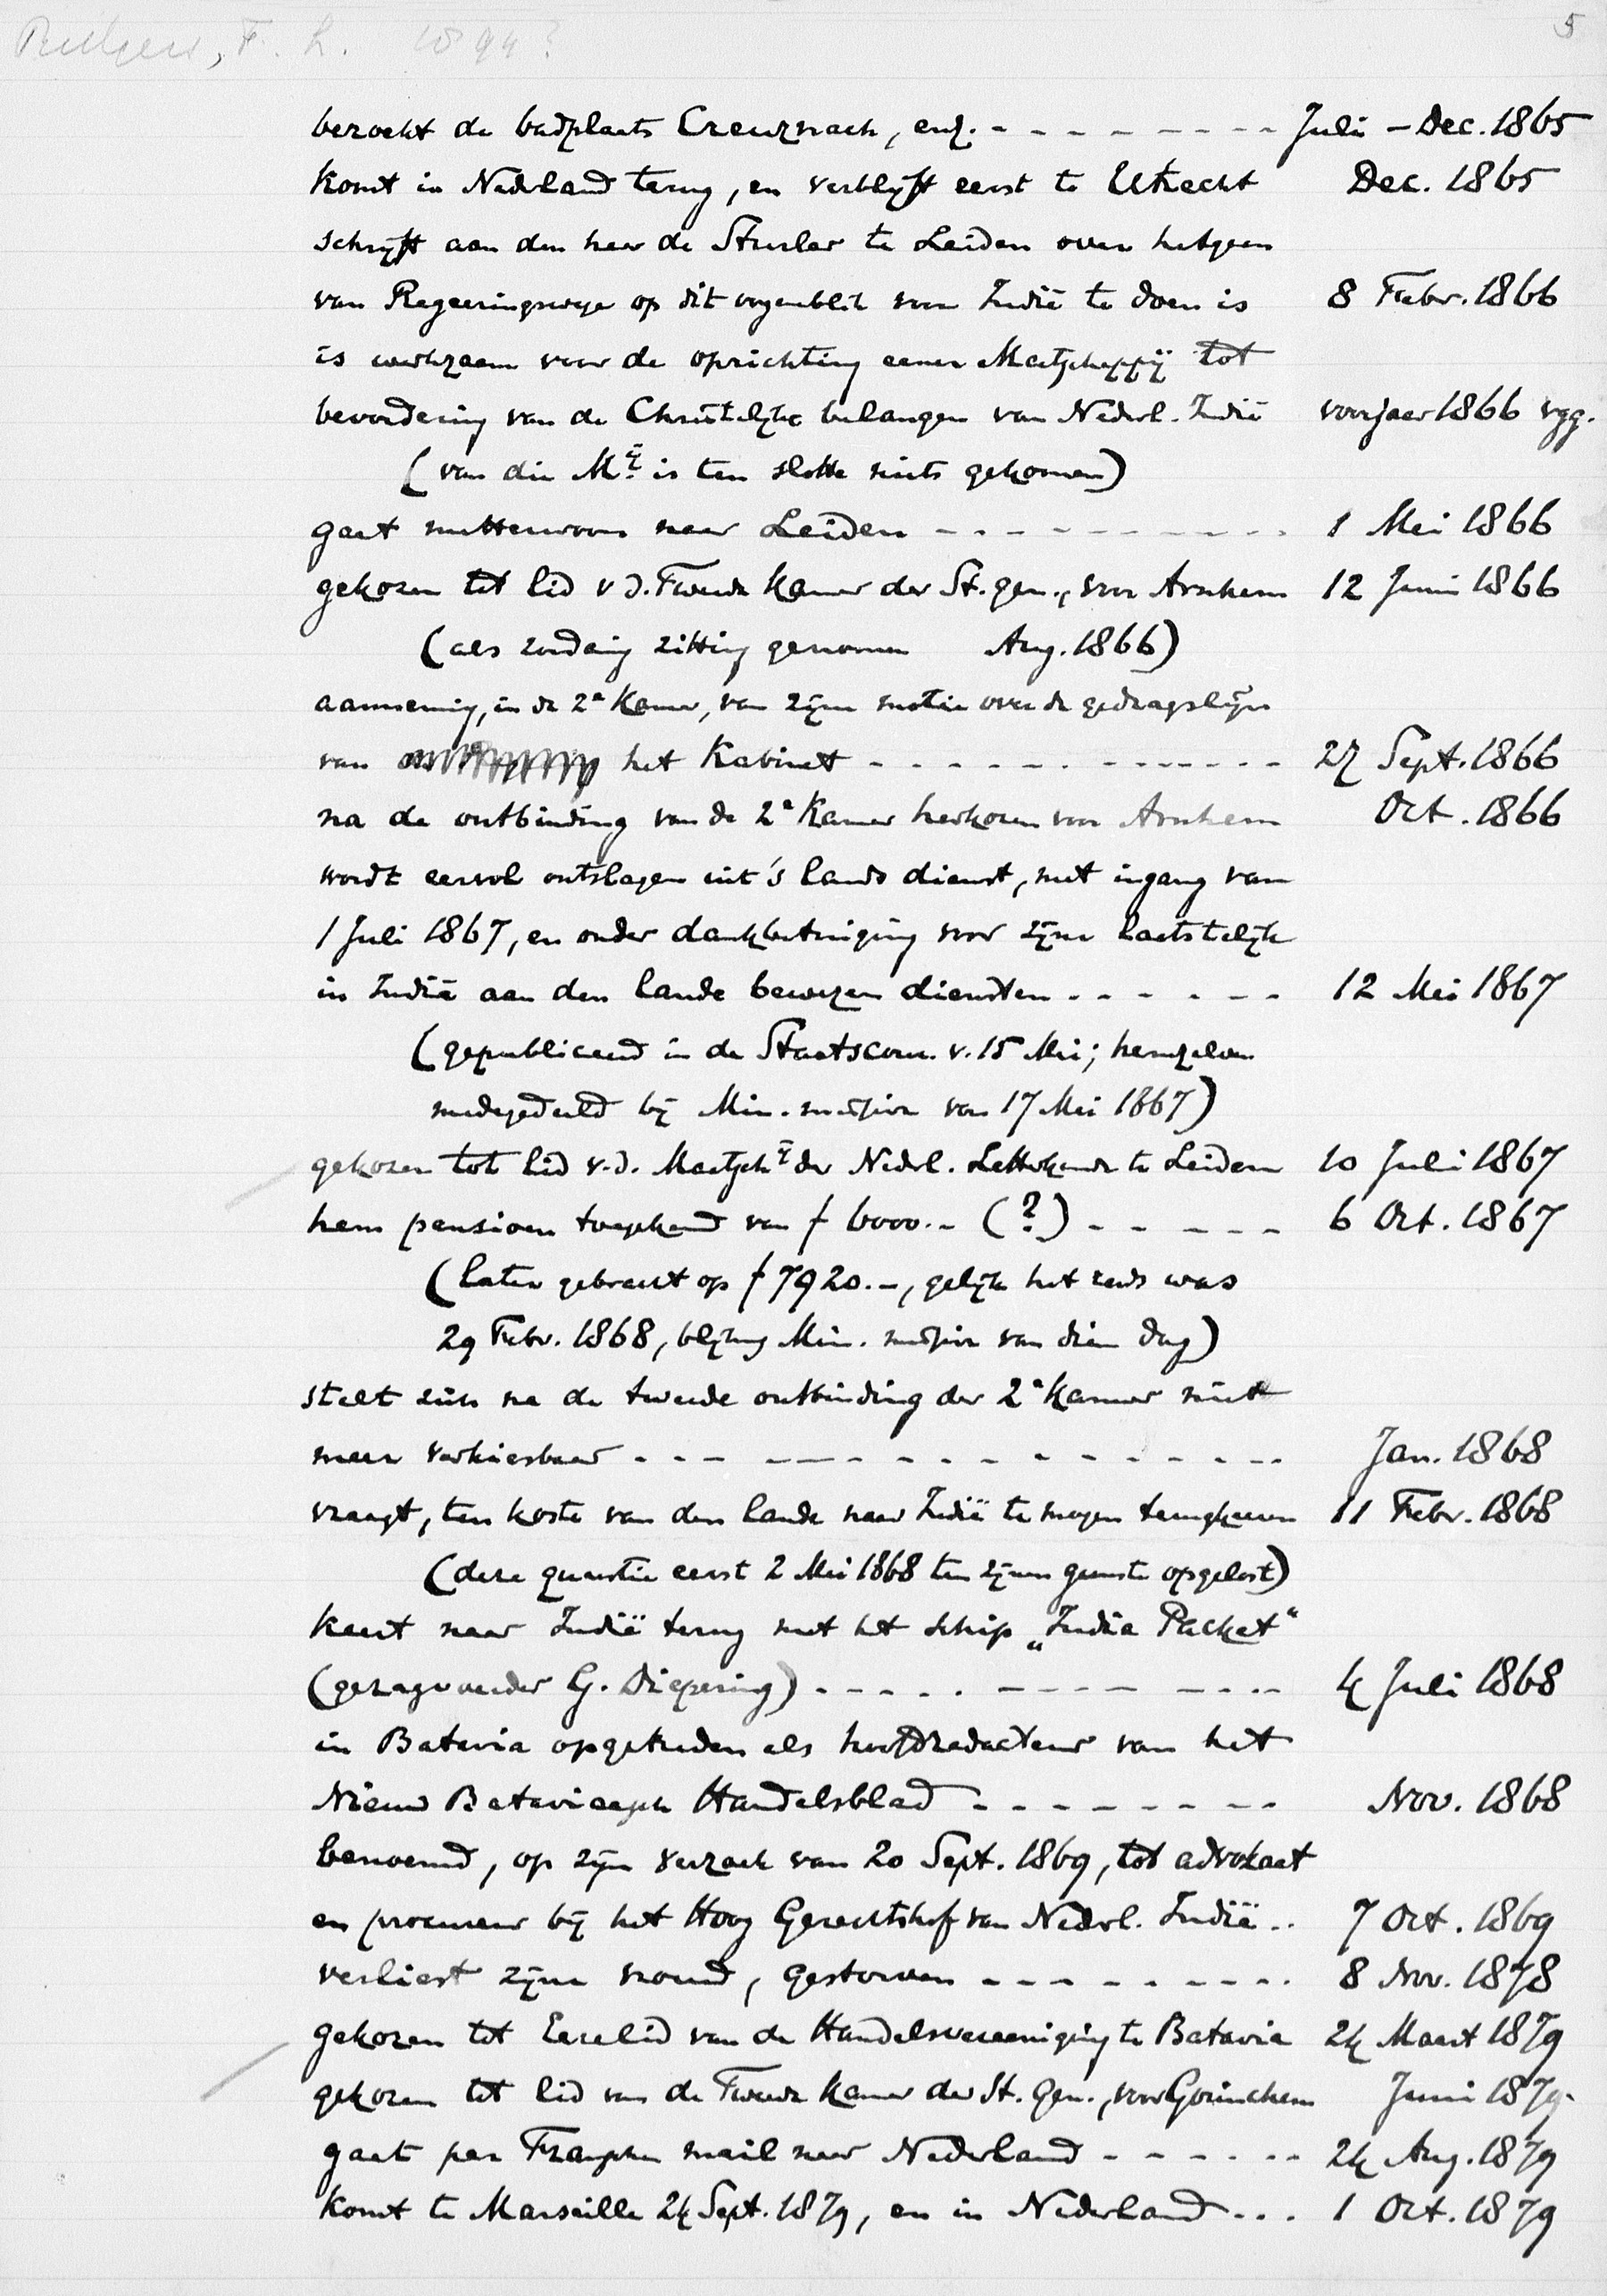 Rutgers, F. L. 1894?
5
bezoekt de badplaats Creuznach, enz. - - - - - - - - Juli – Dec. 1865
komt in Nederland terug, en verblijft eerst te Utrecht Dec. 1865
schrijft aan den heer de Sturler te Leiden over hetgeen
van Regeeringswege op dit oogenblik voor Indië te doen is 8 Febr. 1866
is werkzaam voor de oprichting eener Maatschappij tot
bevordering van de Christelijke belangen van Nederl. Indië voorjaar 1866 vgg.
(van die Mij is ten slotte niets gekomen)
gaat metterwoon naar Leiden - - - - - - - - - - 1 Mei 1866
gekozen tot lid v.d. Tweede Kamer der St. gen., voor Arnhem 12 Juni 1866
(als zoodanig zitting genomen Aug. 1866)
aanneming, in de 2e Kamer, van zijne motie over de gedragslijn
van het Kabinet - - - - - - - - - - - - 27 Sept. 1866
na de ontbinding van de 2e Kamer herkozen voor Arnhem Oct. 1866
wordt eervol ontslagen uit 's lands dienst, met ingang van
1 Juli 1867, en onder dankbetuiging voor zijne laatstelijk
in Indië aan den lande bewezen diensten - - - - - - 12 Mei 1867
(gepubliceerd in de Staatscour. v. 15 Mei; hemzelven
medegedeeld bij Min. missive van 17 Mei 1867)
gekozen tot lid v.d. Maatschij der Nederl. Letterkunde te Leiden 10 Juli 1867
hem pensioen toegekend van f 6000.- (?) - - - - - 6 Oct. 1867
(later gebracht op f 7920.-, gelijk het reeds was
29 Febr. 1868, blijkens Min. missive van dien dag)
stelt zich na de tweede ontbinding der 2e Kamer niet
meer verkiesbaar - - - - - - - - - - - - - - Jan. 1868
vraagt, ten koste van den lande naar Indië te mogen terugkeeren 11 Febr. 1868
(deze quaestie eerst 2 Mei 1868 ten zijnen gunste opgelost)
keert naar Indië terug met het schip „India Packet"
(gezagvoerder G. Diepering) - - - - - - - - - - - - 4 Juli 1868
in Batavia opgetreden als hoofdredacteur van het
Nieuw Bataviaasch Handelsblad - - - - - - - - Nov. 1868
benoemd, op zijn verzoek van 20 Sept. 1869, tot advokaat
en procureur bij het Hoog Gerechtshof van Nederl. Indië .. 7 Oct. 1869
verliest zijne vrouw, gestorven - - - - - - - - - 8 Nov. 1878
gekozen tot Eerelid van de Handelsvereeniging te Batavia 24 Maart 1879
gekozen tot lid van de Tweede Kamer der St. Gen., voor Gorinchem Juni 1879.
gaat per Fransche mail naar Nederland - - - - - - 24 Aug. 1879
komt te Marseille 24 Sept. 1879, en in Nederland ... 1 Oct. 1879